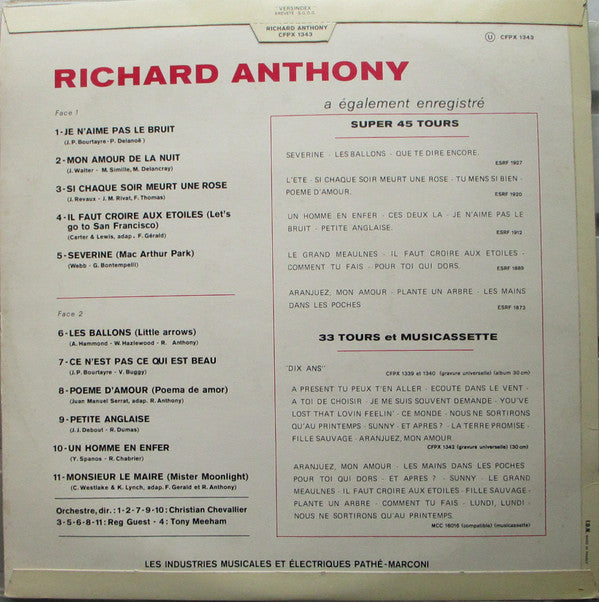 VERSINDEX
BREVETÉ S.G.D.G.
RICHARD ANTHONY
CFPX 1343
U CFPX 1343
RICHARD ANTHONY
a également enregistré
Face 1
1-JE N'AIME PAS LE BRUIT
(J.P. Bourtayre-P. Delanoë)
2-MON AMOUR DE LA NUIT
(J. Walter - M. Simille, M. Delancray)
3-SI CHAQUE SOIR MEURT UNE ROSE
(J. Revaux - J.M. Rivat, F. Thomas)
4-IL FAUT CROIRE AUX ETOILES (Let's
go to San Francisco)
(Carter & Lewis, adap. F. Gérald)
5-SEVERINE (Mac Arthur Park)
(Webb - G. Bontempelli)
Face 2
6-LES BALLONS (Little arrows)
(A. Hammond - W. Hazlewood - R. Anthony)
7-CE N'EST PAS CE QUI EST BEAU
(J.P. Bourtayre - V. Buggy)
8-POEME D'AMOUR (Poema de amor)
(Juan Manuel Serrat, adapt. R. Anthony)
9-PETITE ANGLAISE
(J.J. Debout - R. Dumas)
10-UN HOMME EN ENFER
(Y. Spanos - R. Chabrier)
11-MONSIEUR LE MAIRE (Mister Moonlight)
(C. Westlake & K. Lynch, adap. F. Gerald et R. Anthony)
Orchestre, dir. : 1-2-7-9-10 : Christian Chevallier
3-5-6-8-11 : Reg Guest - 4 : Tony Meeham
SUPER 45 TOURS
SEVERINE - LES BALLONS - QUE TE DIRE ENCORE.
ESRF 1927
L'ETE - SI CHAQUE SOIR MEURT UNE ROSE - TU MENS SI BIEN -
POEME D'AMOUR.
ESRF 1920
UN HOMME EN ENFER - CES DEUX LA - JE N'AIME PAS LE
BRUIT - PETITE ANGLAISE.
ESRF 1912
LE GRAND MEAULNES - IL FAUT CROIRE AUX ETOILES -
COMMENT TU FAIS - POUR TOI QUI DORS.
ESRF 1889
ARANJUEZ, MON AMOUR - PLANTE UN ARBRE - LES MAINS
DANS LES POCHES
ESRF 1873
33 TOURS et MUSICASSETTE
"DIX ANS"
CFPX 1339 et 1340 (gravure universelle) (album 30 cm)
A PRESENT TU PEUX T'EN ALLER - ECOUTE DANS LE VENT -
A TOI DE CHOISIR - JE ME SUIS SOUVENT DEMANDE - YOU'VE
LOST THAT LOVIN FEELIN' - CE MONDE - NOUS NE SORTIRONS
QU'AU PRINTEMPS - SUNNY - ET APRES ? - LA TERRE PROMISE -
FILLE SAUVAGE - ARANJUEZ, MON AMOUR
CFPX 1342 (gravure universelle) (30 cm)
ARANJUEZ, MON AMOUR - LES MAINS DANS LES POCHES
POUR TOI QUI DORS - ET APRÈS ? - SUNNY - LE GRAND
MEAULNES - IL FAUT CROIRE AUX ETOILES - FILLE SAUVAGE -
PLANTE UN ARBRE - COMMENT TU FAIS - LUNDI, LUNDI -
NOUS NE SORTIRONS QU'AU PRINTEMPS.
MCC 16016 (compatible) (musicassette)
LES INDUSTRIES MUSICALES ET ÉLECTRIQUES PATHÉ-MARCONI